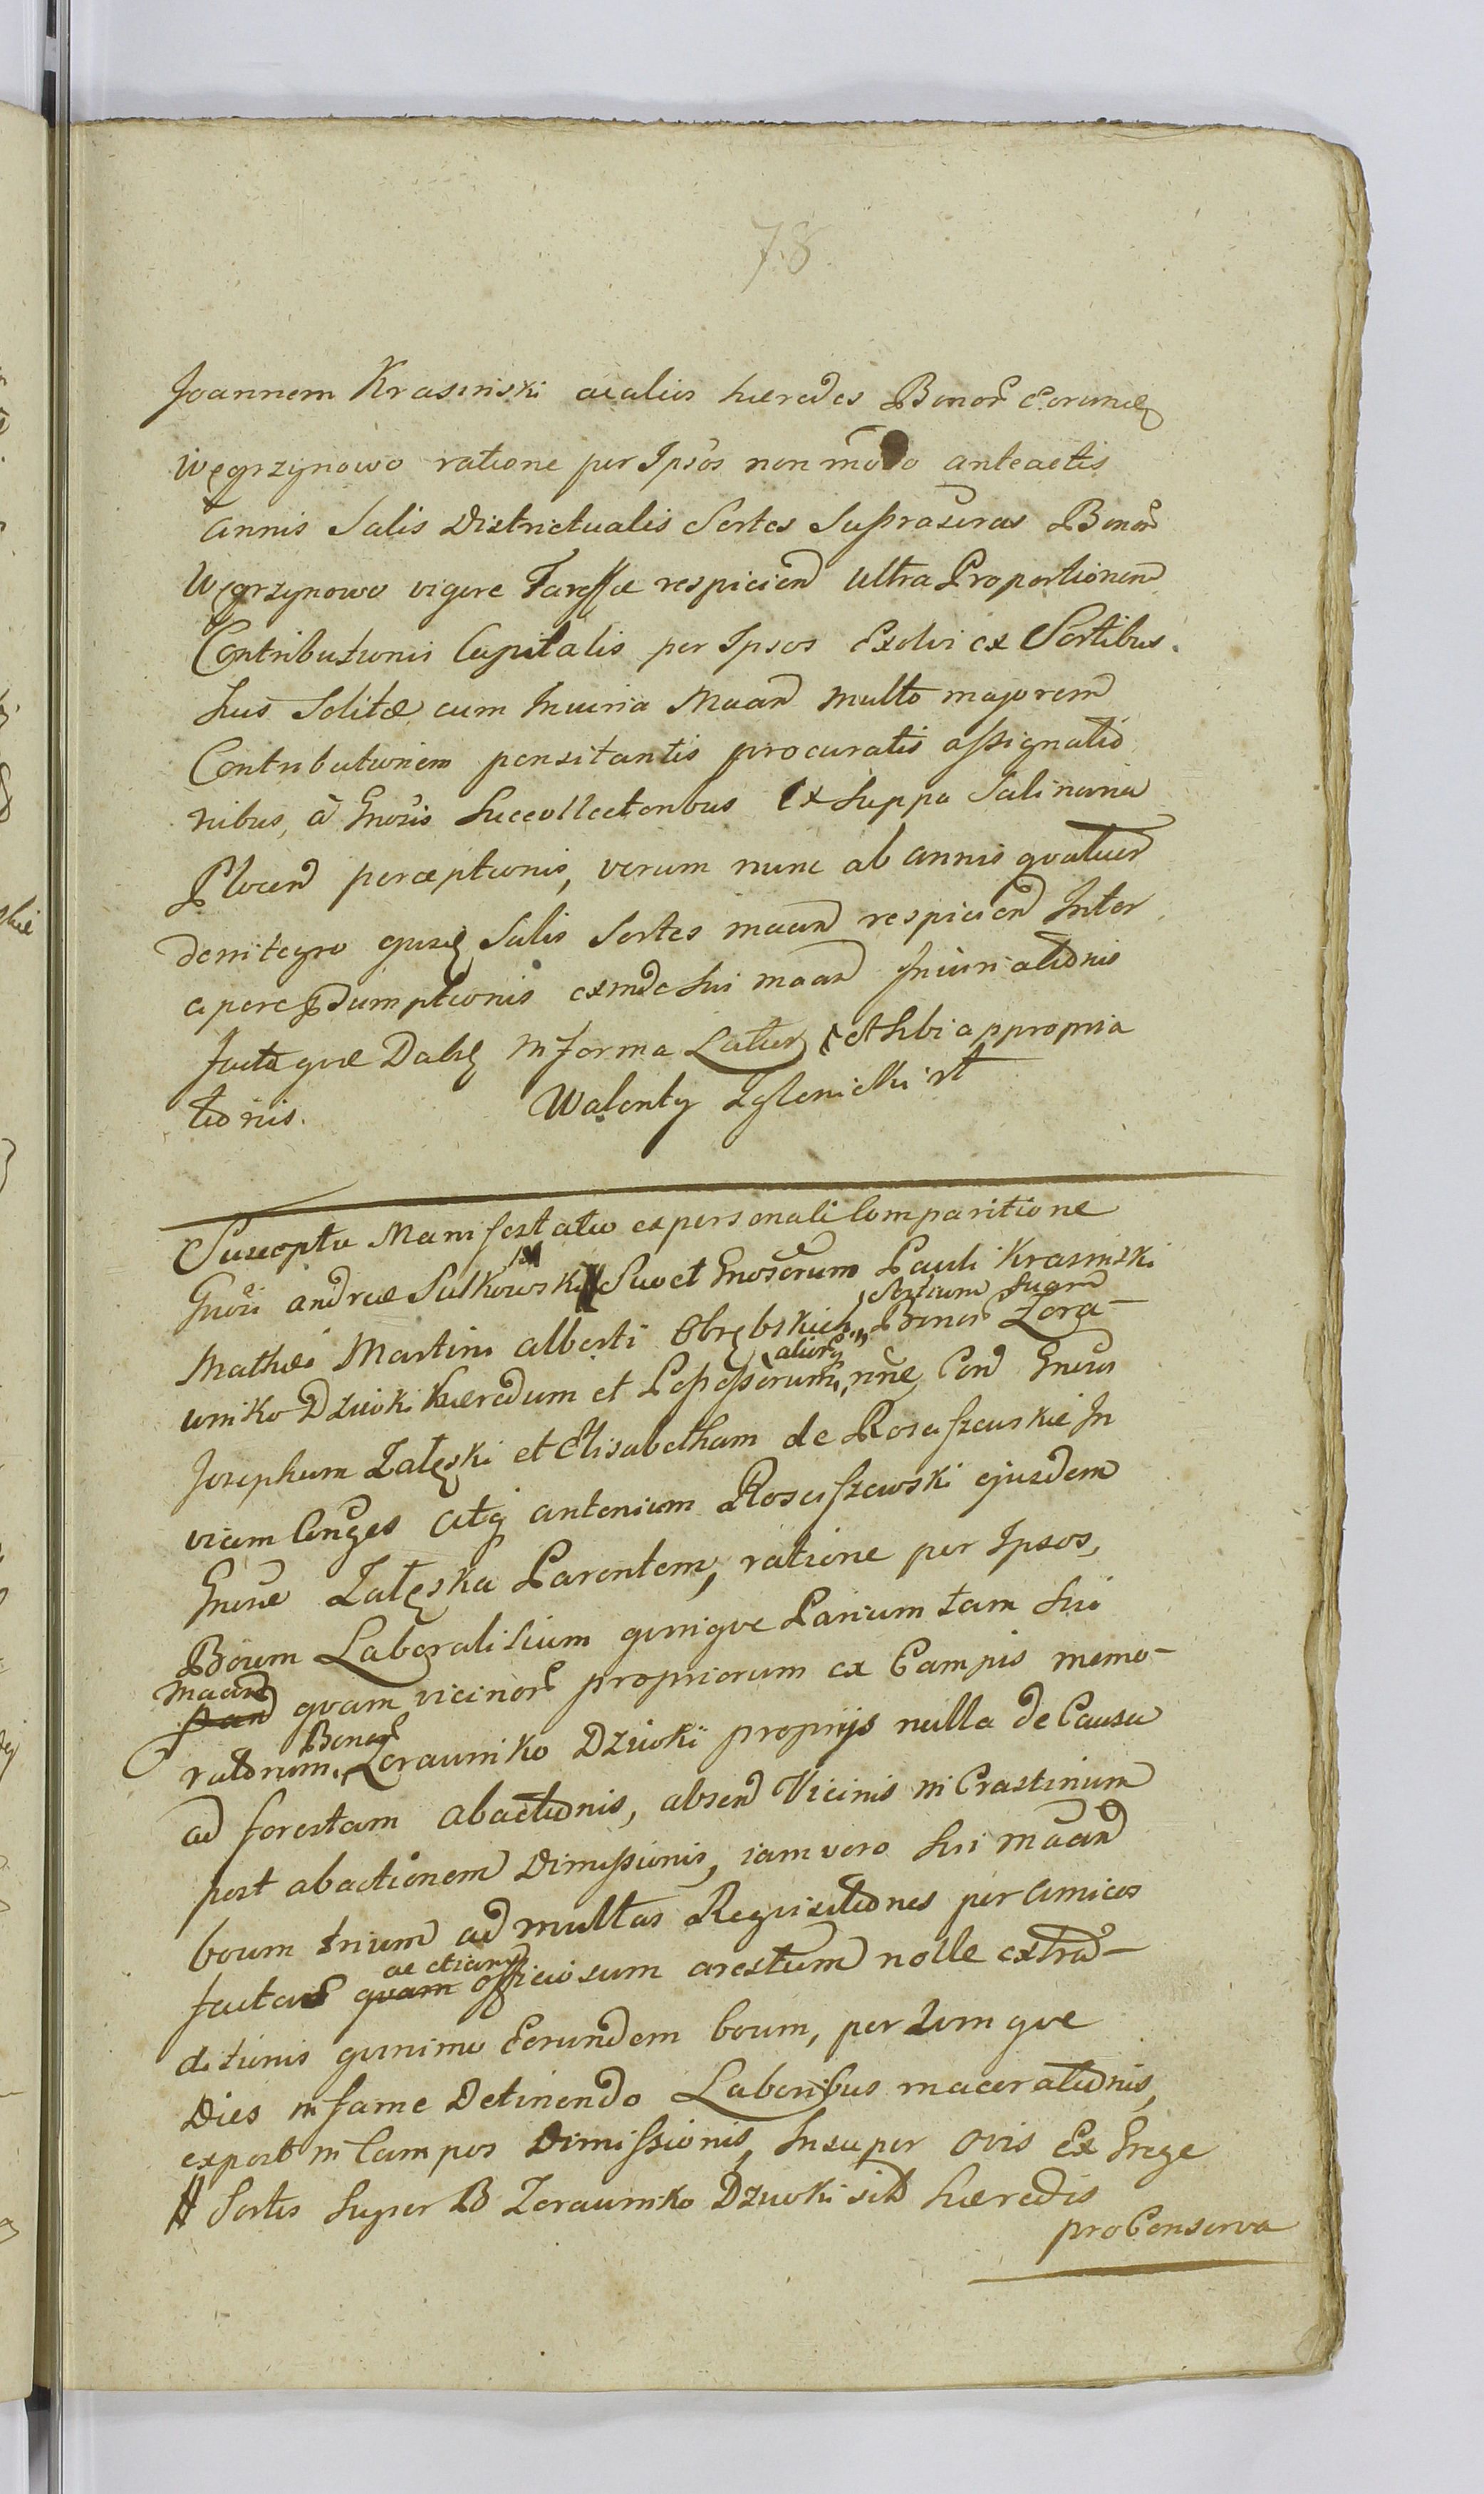 78.
Joannem Krasinski ac alios hæredes Bonor̃ eorundẽ
Węgrzynowo ratione per Ipsos non modo anteactis
annis Salis Districtualis Sortes Suprascras Bonor̃
Węgrzynowo vigore Tareffæ respicien ultra Proportionem
Contributionis Capitalis per Ipsos Exolvi ex Sortibus
suis Solitæ cum Iniuria Maan multo majorem
Contributionem pensitantis procuratis assignatio
nibus, à Gnosis Succollectoribus Ex Suppa Salinaria
Plocen perceptionis, verum nunc ab annis qvatuor
denitegro ejusd Salis Sortes maan respicien Inter
perceptionis exinde sui maan Iniuriationis
factæque Dabil in forma Latius et sibi appropria
tionis. Walenty Zglenicki mp
Suscepta Manifestatio ex personali Comparitione
Gnosi Andreæ Sulkowski Suo et Gnosorum Pauli Krasinski
Mathæi Martini Alberti Obrębskich, Sortium suarum Bonor̃ Zora-
wniko Dziwoki Hæredum et Possessorum, aliorũ nne, Con Gnosos
Josephum Załęski et Elisabetham de Rosciszewskie In
vicem Conjges atq Antonium Rosciszewski ejusdem
Gnosæ Załęska Parentem, ratione per Ipsos,
Boum Laboralisium quinque Parium tam sui
Maan qvam vicinor̃ propriorum ex Campis memo-
ratorum Bonor̃ Zorawniko Dziwoki proprijs nulla de Causa
ad forestam abactionis, absen Vicinis in Crastinum
post abactionem Dimissionis, iam vero sui maan
boum trium ad multas Reqvisitiones per Amicos
factas qvam ac etiam officiosum arestum nolle extra-
ditionis qvinimo Eorundem boum, per Zomque
Dies in fame Detinendo Laboribus macerationis,
expost in Campos Dimissionis, Insuper Ovis Ex Grege
# Sortis super B Zorawniko Dziwoki sit hæredis
pro Conserva